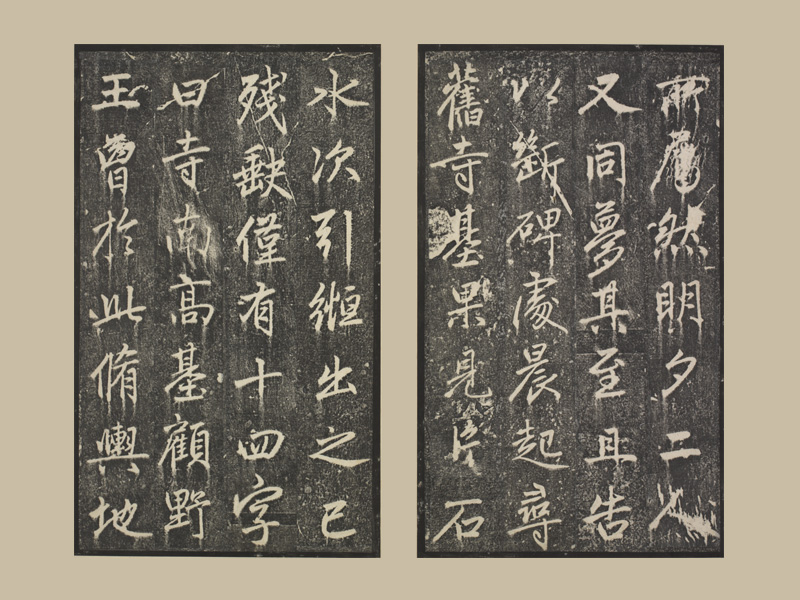 然明夕二人
又同夢其至且告
以斷碑處晨起尋
舊寺基果見片石
水次引縆出之已
殘缺僅有十四字
曰寺南高基顧野
王曾於此脩輿地